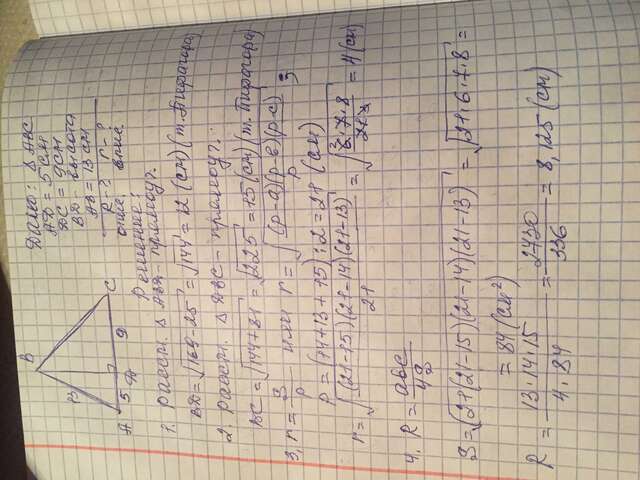 Дано: Δ ABC
AD = 5 см
DC = 9 см
BD - высота
AB = 13 см
R - ? r - ?
опис. впис.
B
13
A 5 D 9 C
Решение:
1. рассм. Δ ABD - прямоуг.
BD = √169-25 = √144 = 12 (см) (т. Пифагора)
2. рассм. Δ DBC - прямоуг.
BC = √144+81 = √225 = 15 (см) (т. Пифагора)
3. r = S/p или r = √(p-a)(p-b)(p-c)/p ;
p = (14+13+15):2 = 21 (см)
r = √(21-15)(21-14)(21-13)/21 = √6·7·8/21 = 4 (см)
4. R = abc/4S
S = √21(21-15)(21-14)(21-13) = √21·6·7·8 =
= 84 (см²)
R = 13·14·15/4·84 = 2730/336 = 8,125 (см)